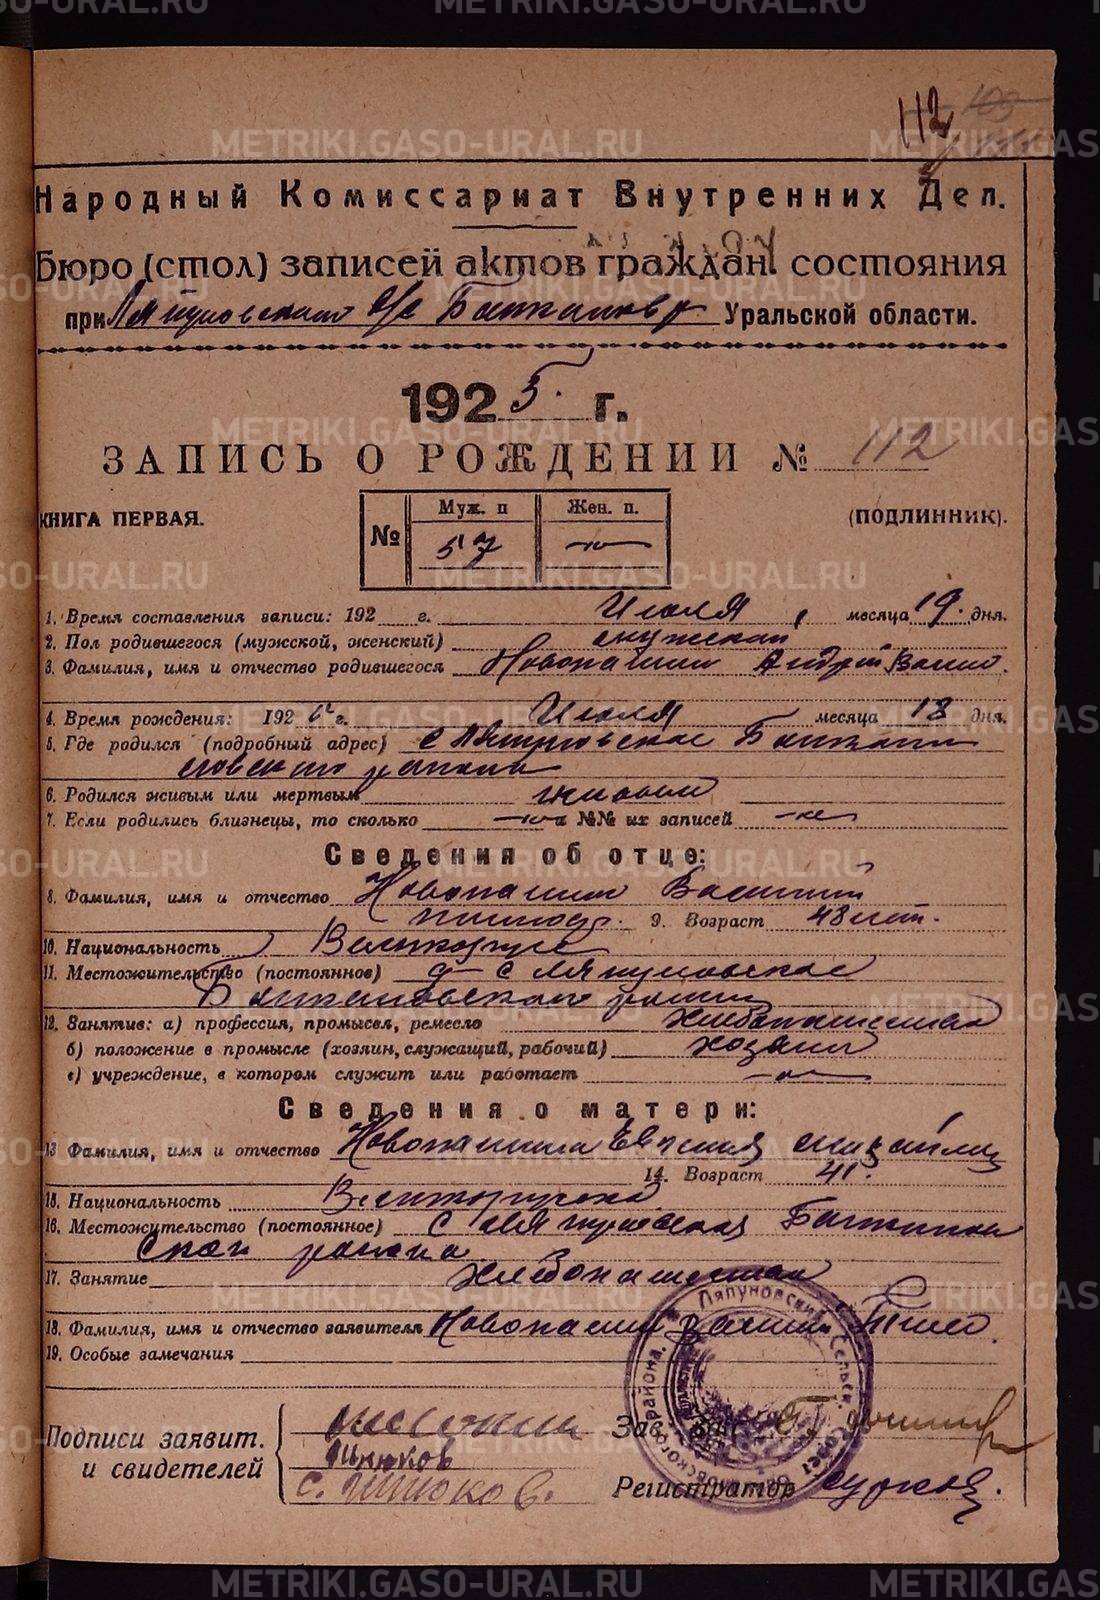 112 109
Народный Комиссариат Внутренних Дел.
Бюро (стол) записей актов граждан. состояния
при Ляпуновского с/с Баженовс р Уральской области.
1925 г.
ЗАПИСЬ О РОЖДЕНИИ № 112
КНИГА ПЕРВАЯ. № Муж. п 57 Жен. п. (ПОДЛИННИК).
1. Время составления записи: 192 г. Июля месяца 19. дня.
2. Пол родившегося (мужской, женский) мужской
3. Фамилия, имя и отчество родившегося Новопашин Андрей Васил.
4. Время рождения: 192 г. Июля месяца 18 дня.
5. Где родился (подробный адрес) с Ляпуновское Баженовского района
6. Родился живым или мертвым живым
7. Если родились близнецы, то сколько и №№ их записей
Сведения об отце:
8. Фамилия, имя и отчество Новопашин Василий
9. Возраст 48 лет.
10. Национальность Великорусс
11. Местожительство (постоянное) с Ляпуновское
Баженовского района
12. Занятие: а) профессия, промысел, ремесло хлебопашество
б) положение в промысле (хозяин, служащий, рабочий) хозяин
в) учреждение, в котором служит или работает
Сведения о матери:
13 Фамилия, имя и отчество Новопашина Евгения Михайлов
14. Возраст 41.
15. Национальность Великорусска
16. Местожительство (постоянное) с Ляпуновская Баженов
ской района
17. Занятие хлебопашество
18. Фамилия, имя и отчество заявителя Новопашин Васил
19. Особые замечания
Ляпуновский Сельск. Совет Баженовского района.
Подписи заявит. и свидетелей
Пинюков
С. Пинюков.
Зав.
Регистратор